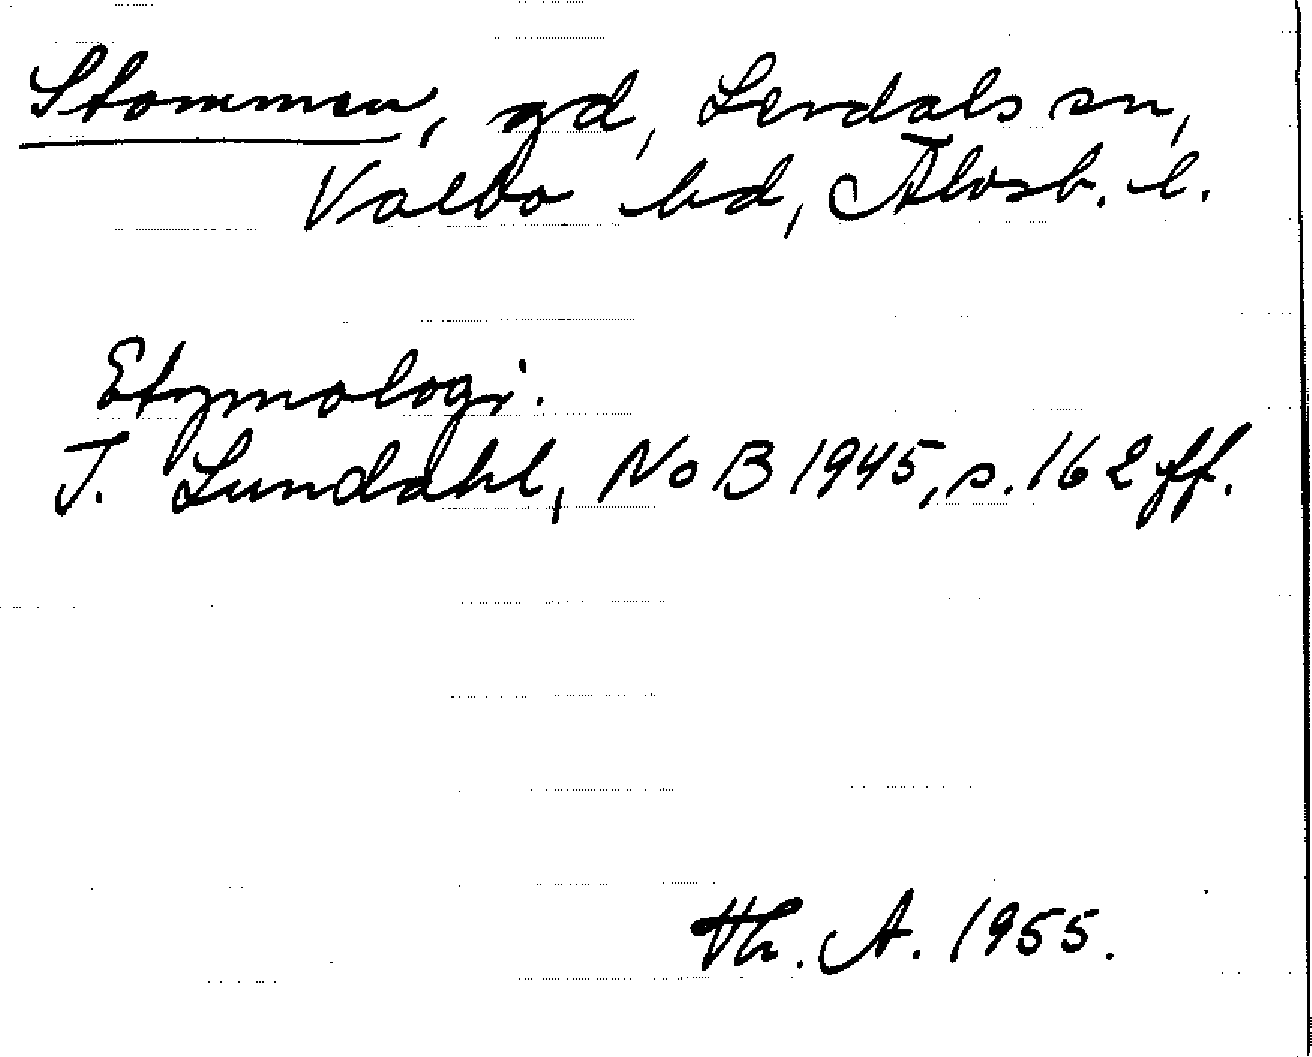 Stommen, gd, Lerdals sn,
Valbo hd, Älvsb. l.
Etymologi.
I. Lundahl, NoB 1945, s. 162 ff.
Th. A. 1955.